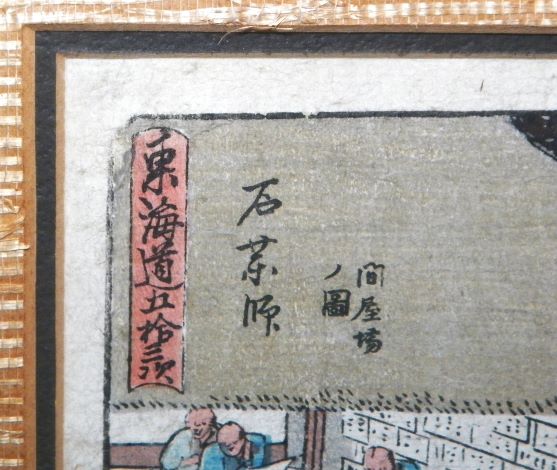 東海道五拾三次
石薬師
問屋場
ノ圖